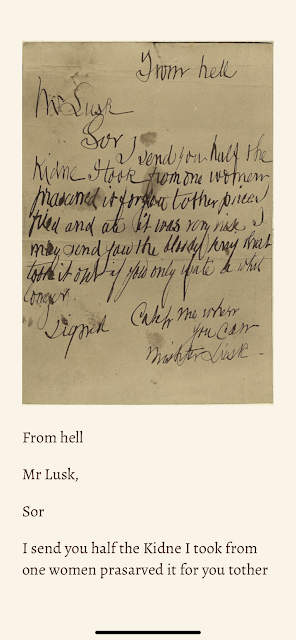 From hell
Mr Lusk
Sor
I send you half the
Kidne I took from one women
prasarved it for you tother piece I
fried and ate it was very nise I
may send you the bloody knif that
took it out if you only wate a whil
longer.
Signed
Catch me when
you Can
Mishter Lusk.
From hell
Mr Lusk,
Sor
I send you half the Kidne I took from
one women prasarved it for you tother